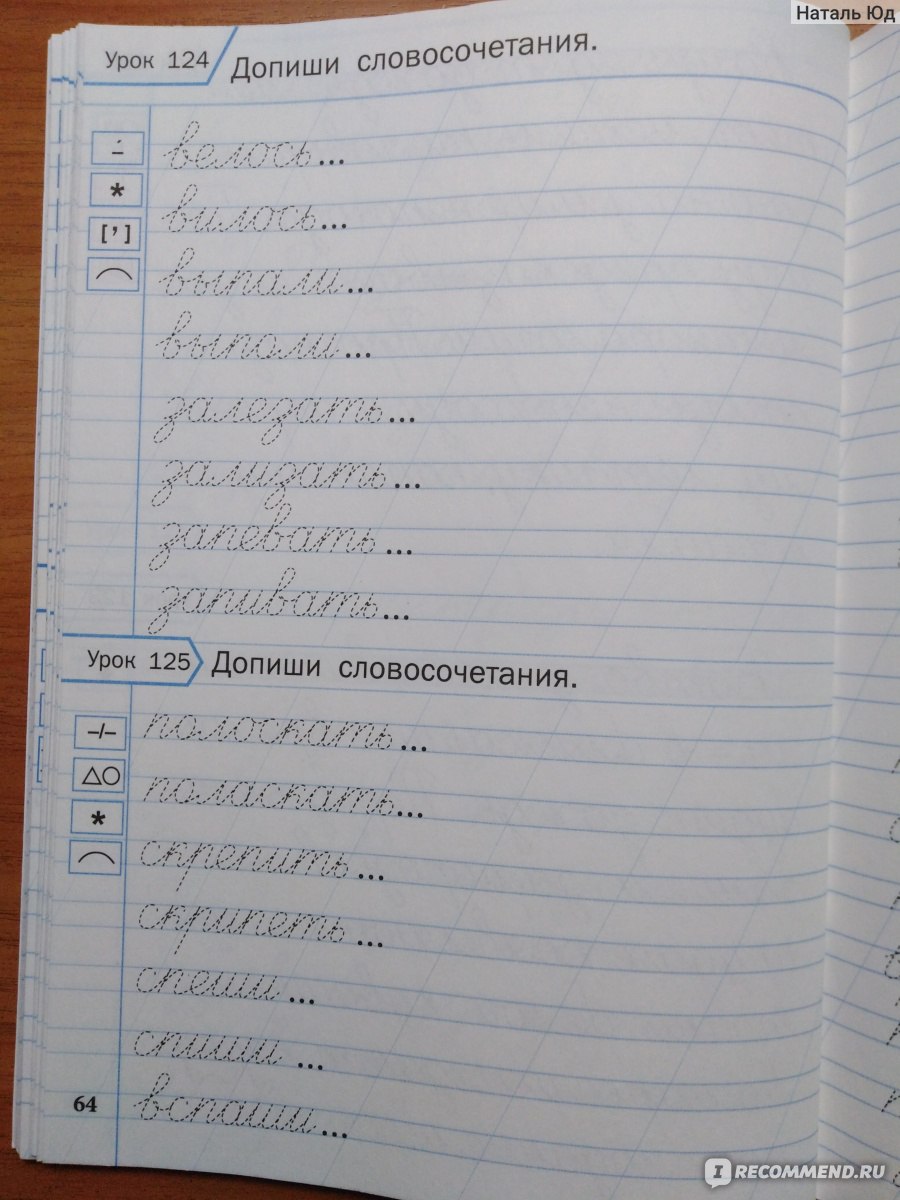 Наталь Юд
Урок 124 Допиши словосочетания.
*
[']
велось...
вилось...
выпали...
выполи...
залезать...
зализать...
запевать...
запивать...
Урок 125 Допиши словосочетания.
–/–
△○
*
полоскать...
поласкать...
скрепить...
скрипеть...
спеши...
спиши...
вспаши...
64
IRECOMMEND.RU